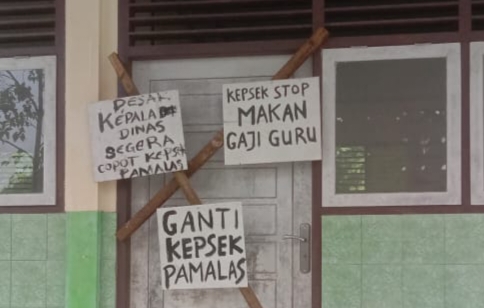 DESAK
KEPALA
DINAS
SEGERA
COPOT KEPSEK
PAMALAS
KEPSEK STOP
MAKAN
GAJI GURU
GANTI
KEPSEK
PAMALAS